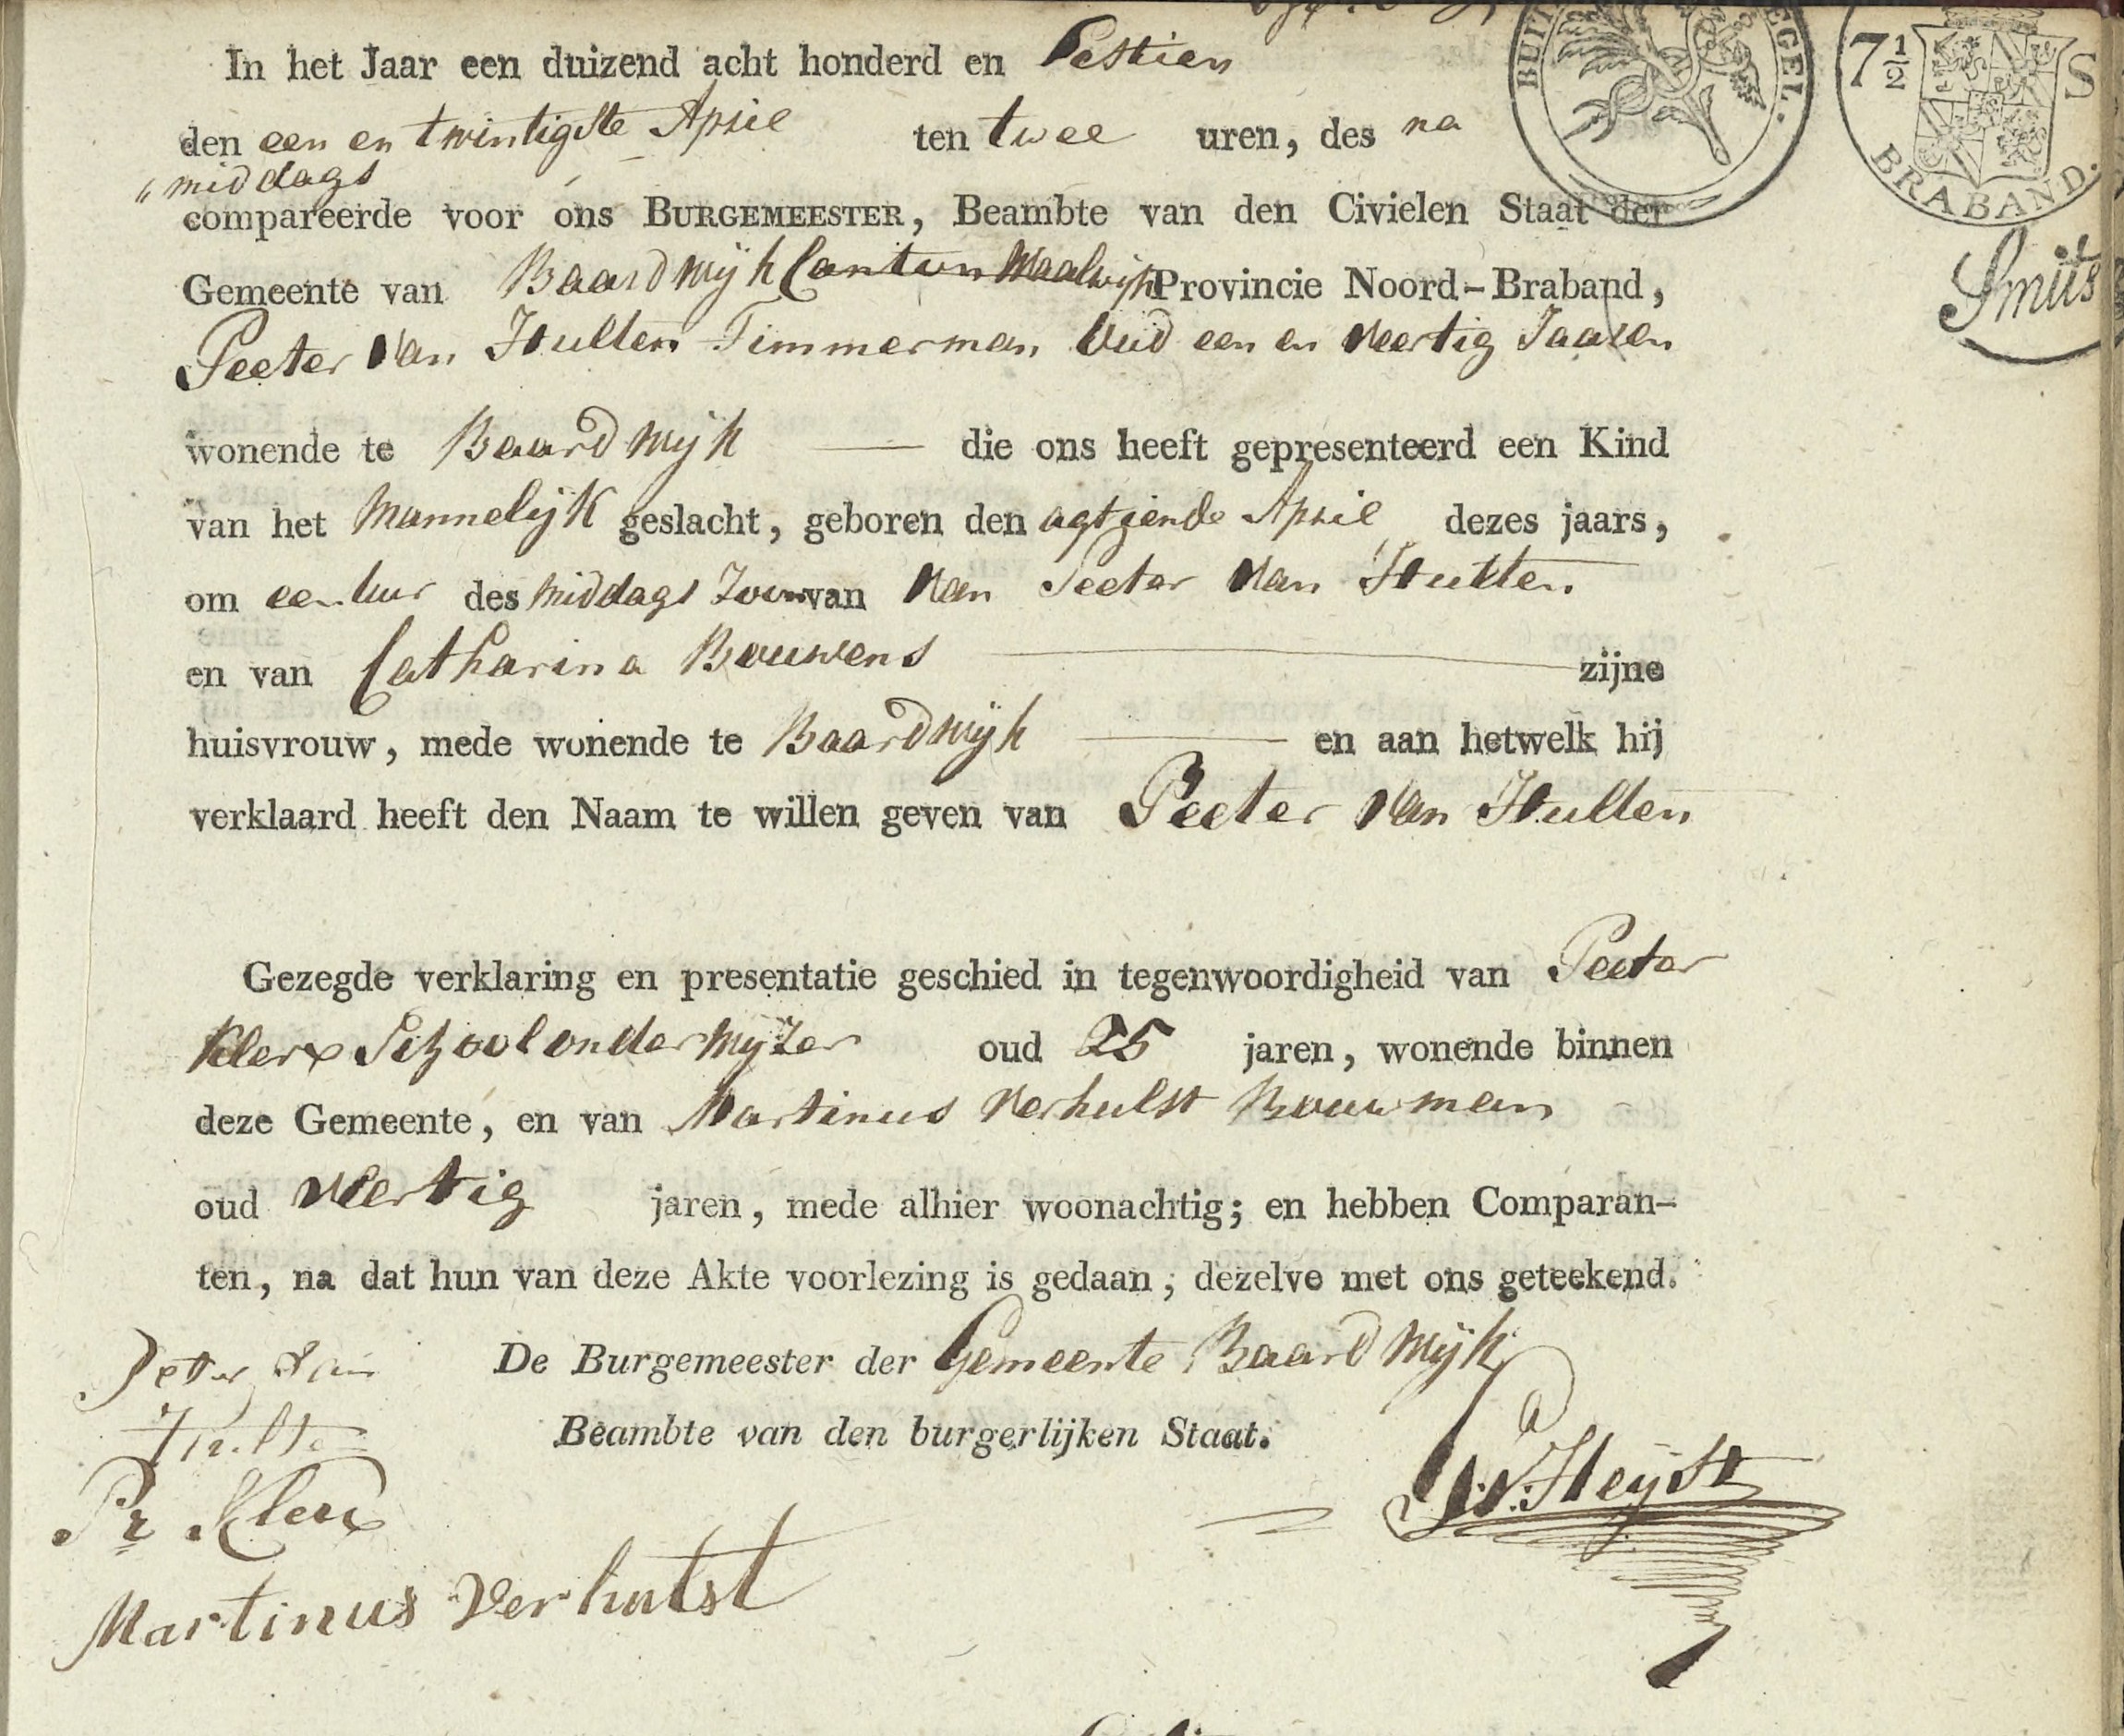 In het Jaar een duizend acht honderd en Sestien
den een en twintigste April ten twee uren, des na
„middags
compareerde voor ons BURGEMEESTER, Beambte van den Civielen Staat der
Gemeente van Baardwijk Canton Waalwijk Provincie Noord-Braband,
Peeter Van Hulten Timmerman Oud een en Veertig Jaaren
wonende te Baardwijk die ons heeft gepresenteerd een Kind
van het Mannelijk geslacht, geboren den agtiende April dezes jaars,
om een Uur des Middags Zoon van Van Peeter Van Hulten
en van Catharina Bouwens zijne
huisvrouw, mede wonende te Baardwijk en aan hetwelk hij
verklaard heeft den Naam te willen geven van Peeter Van Hulten
Gezegde verklaring en presentatie geschied in tegenwoordigheid van Peeter
Klerx Schoolonderwijzer oud 25 jaren, wonende binnen
deze Gemeente, en van Martinus Verhulst Bouwman
oud Veertig jaren, mede alhier woonachtig; en hebben Comparan-
ten, na dat hun van deze Akte voorlezing is gedaan, dezelve met ons geteekend.
De Burgemeester der Gemeente Baardwijk
Beambte van den burgerlijken Staat.
Peter van
Hulten
Pr Klerx
Martinus Verhulst
W. Heyst
BUIT EGEL.
7½ S
BRABAND.
Smits